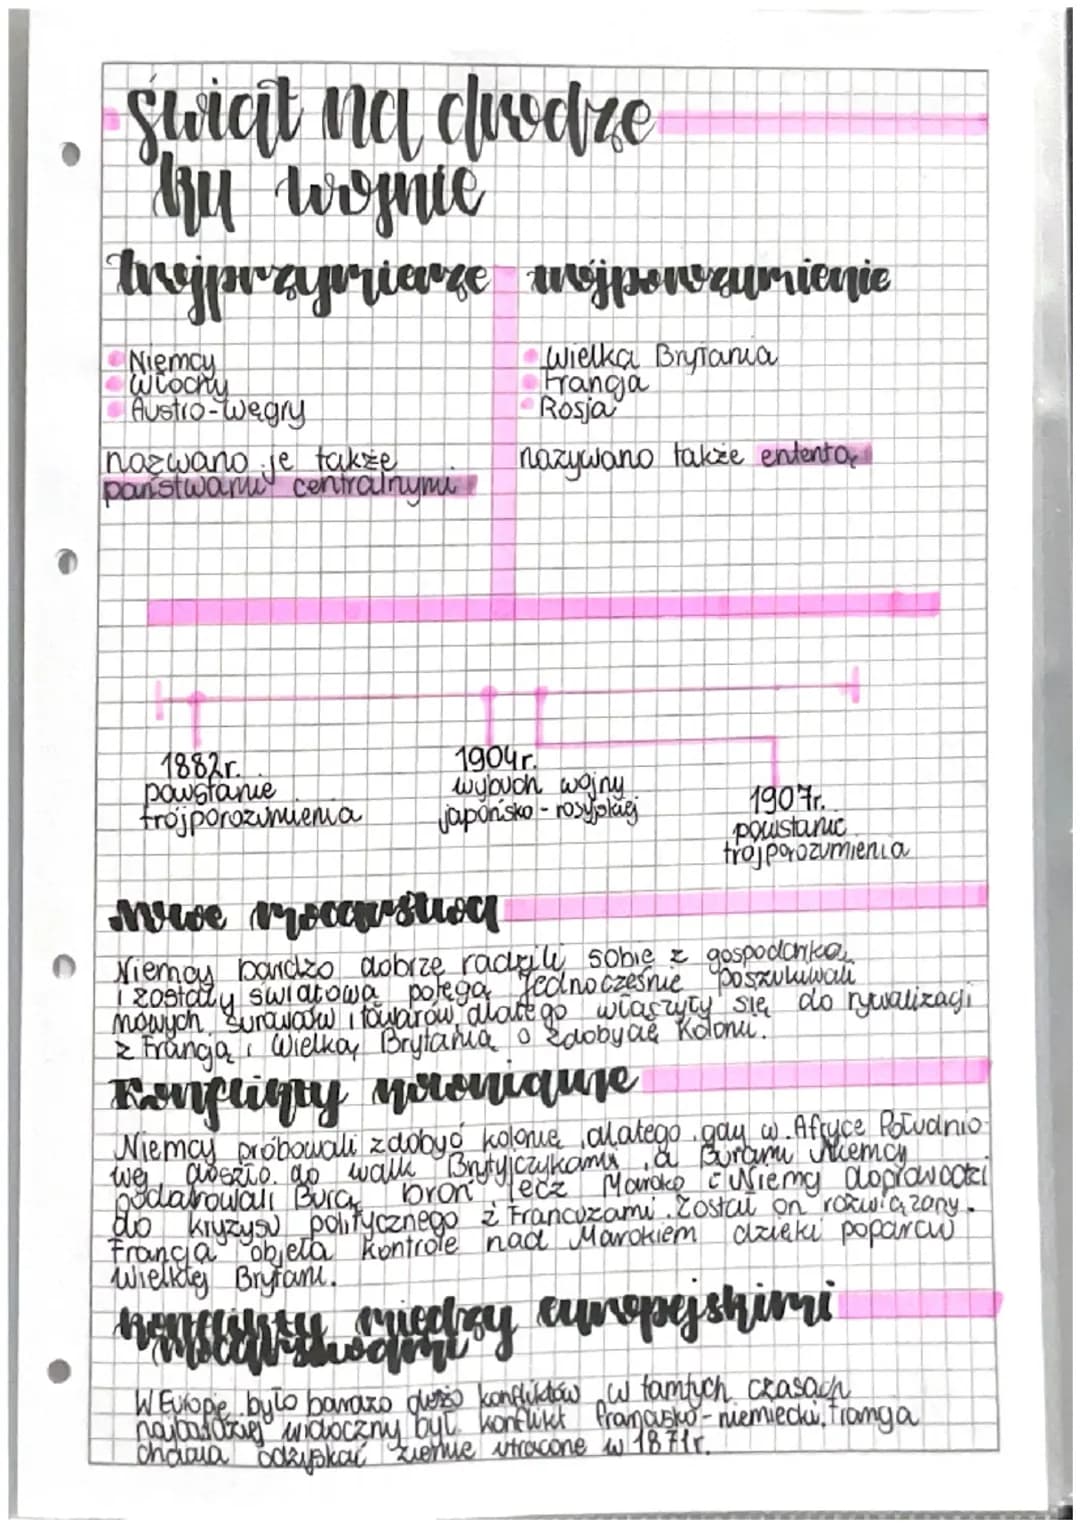 świat na drodze
ku wojnie
trójprzymierze
trójporozumienie
Niemcy
Włochy
Austro-Węgry
nazwano je także
państwami centralnymi
Wielka Brytania
Francja
Rosja
nazywano także ententą
1882r.
powstanie
trójporozumienia
1904r.
wybuch wojny
japońsko-rosyjskiej
1907r.
powstanie
trójporozumienia
Nowe mocarstwa
Niemcy bardzo dobrze radzili sobie z gospodarką
i zostały światową potęgą Jednocześnie poszukiwali
nowych surowców i towarów dlatego włączyły się do rywalizacji
z Francją i Wielką Brytanią o zdobycie Kolonii.
Konflikty
Niemcy próbowali zdobyć kolonie, dlatego gdy w Afryce Południo-
wej doszło do walk Brytyjczykami, a Burami Niemcy
podarowali Burą broń, lecz Maroko Niemcy doprowadzi
do kryzysu politycznego z Francuzami. Został on rozwiązany.
Francja objęła kontrolę nad Marokiem dzięki poparciu
Wielkiej Brytani.
konflikty między europejskimi
mocarstwami
W Europie było bardzo dużo konfliktów w tamtych czasach
najbardziej widoczny był konflikt francusko-niemiecki, Francja
chciała odzyskać ziemie utracone w 1871r.